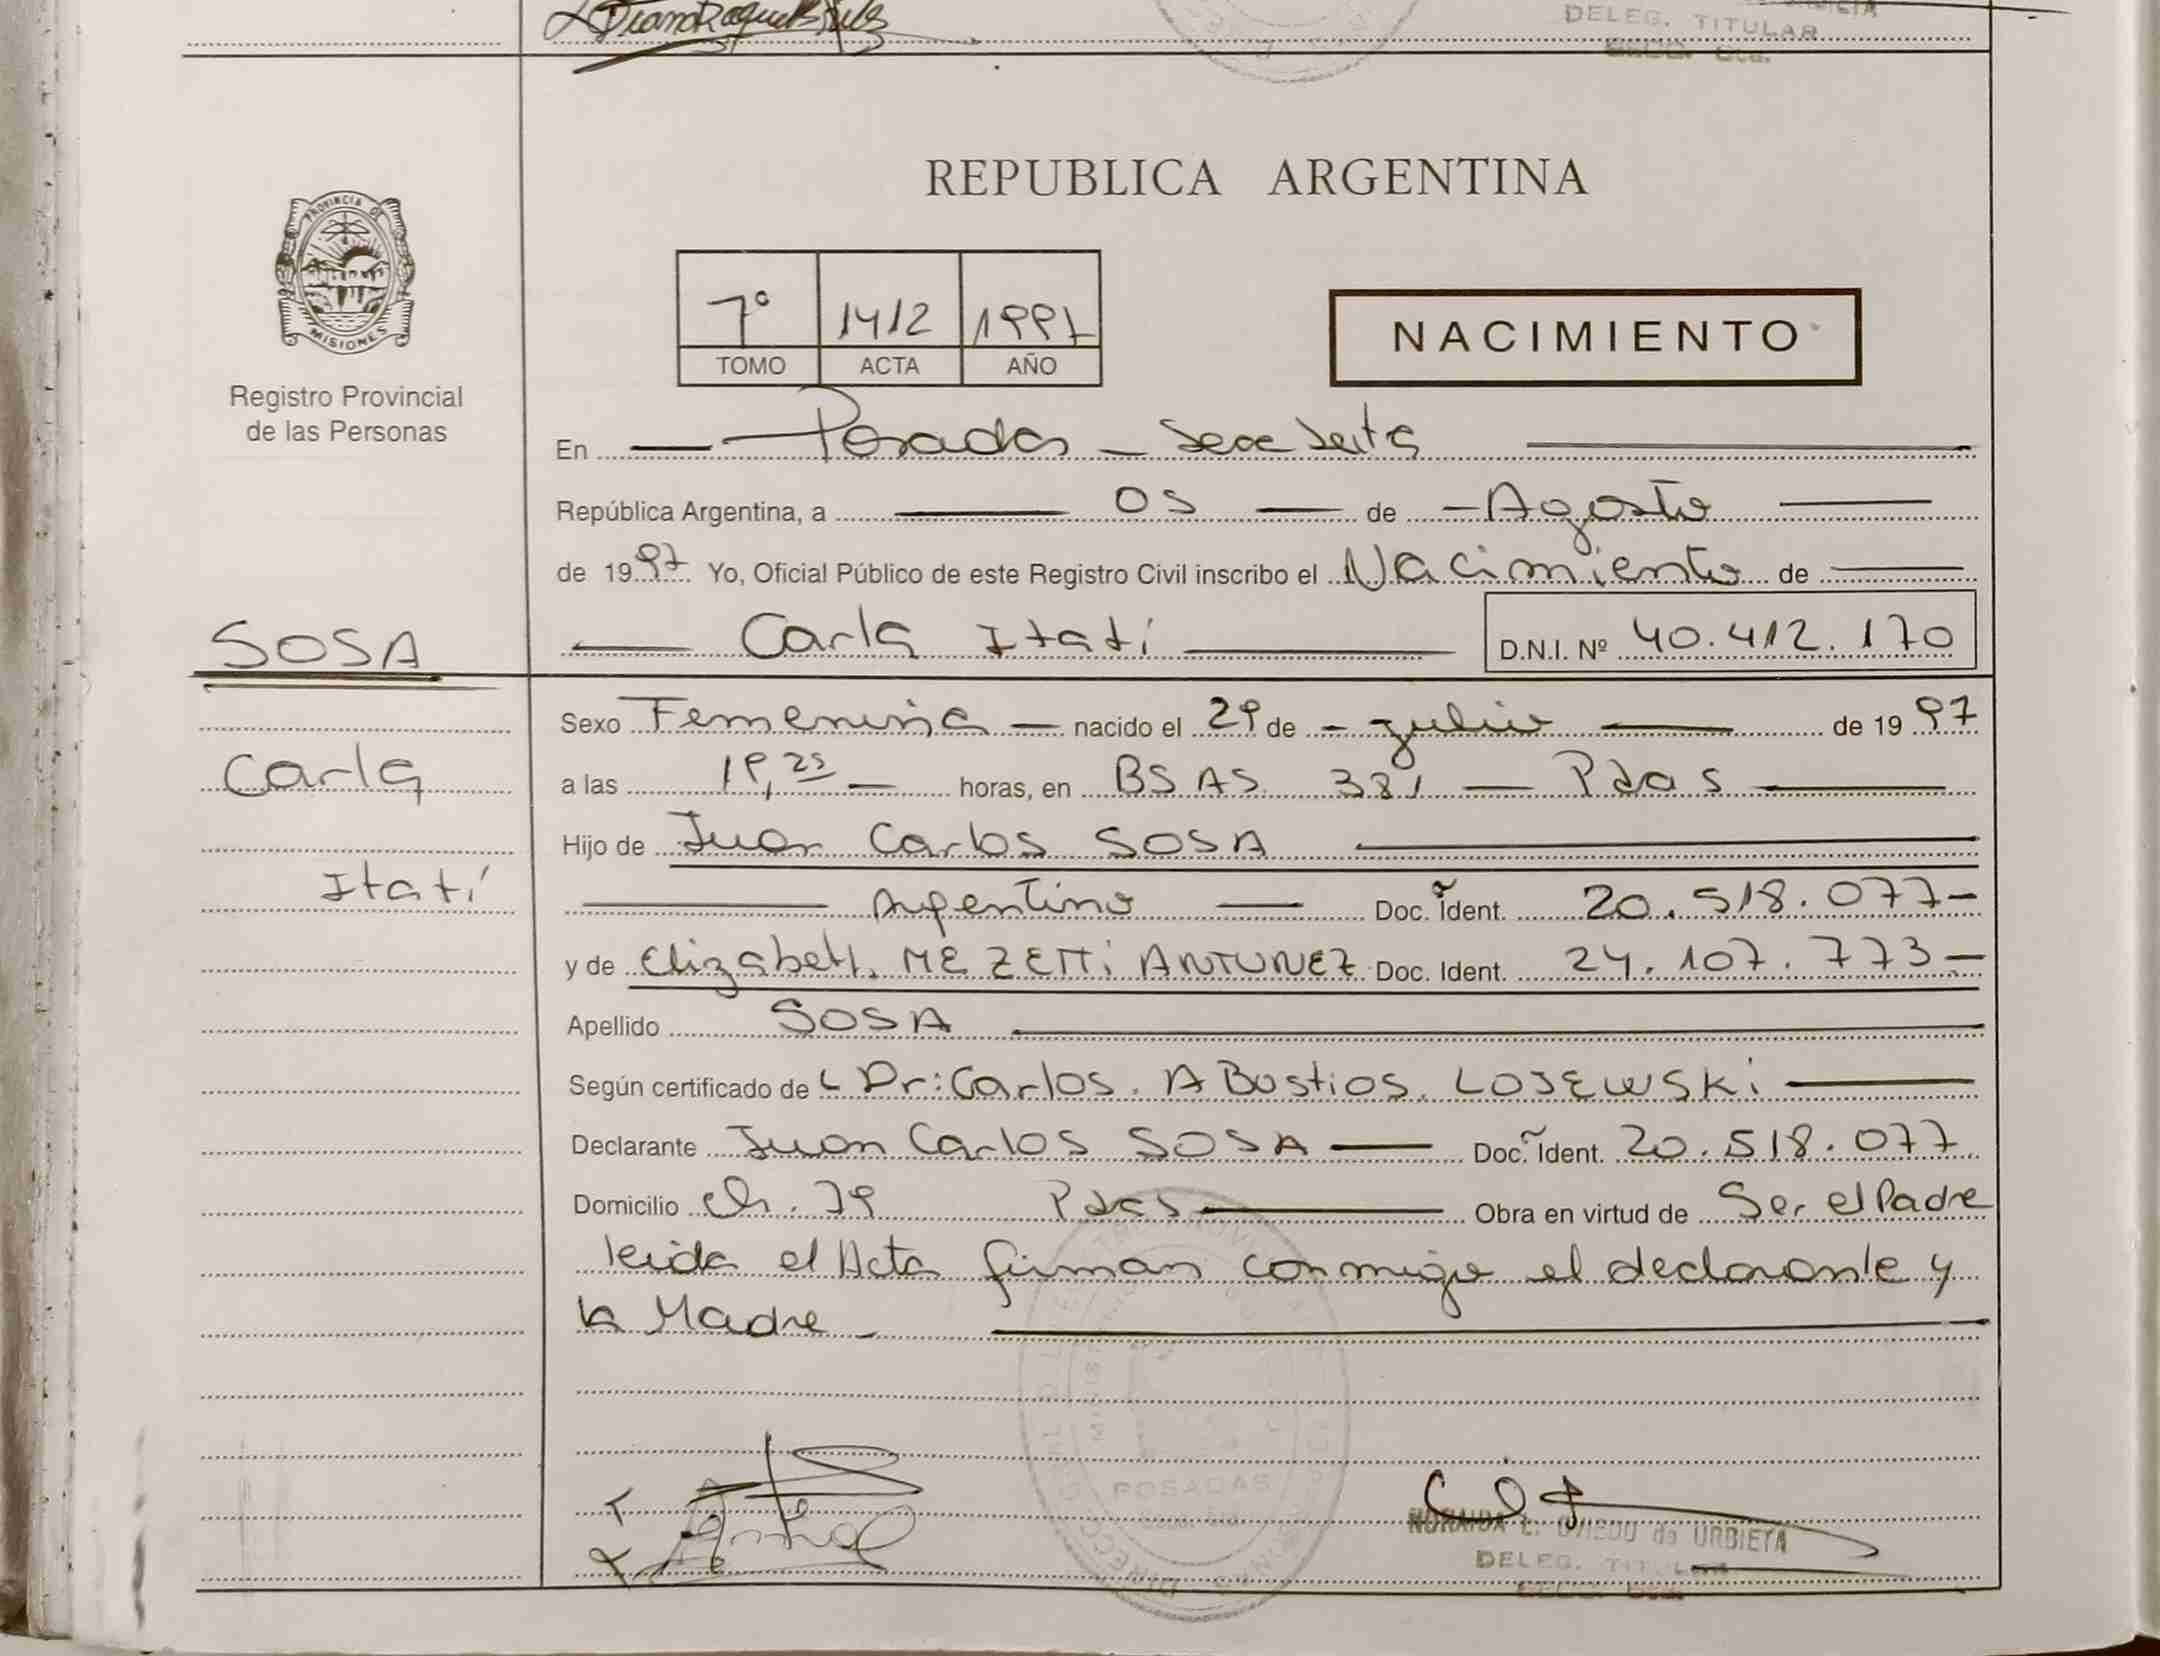 DELEG. TITULAR
REPUBLICA ARGENTINA
PROVINCIA DE
MISIONES
Registro Provincial
de las Personas
7º 1412 1997
TOMO ACTA AÑO
NACIMIENTO
En Posadas - Secc Sexta
República Argentina, a 05 de - Agosto
de 1997 Yo, Oficial Público de este Registro Civil inscribo el Nacimiento de
SOSA
Carla Itatí D.N.I. Nº 40.412.170
Sexo Femenina nacido el 29 de - Julio de 1997
Carla
a las 19,25 horas, en BS AS. 381 - Pdas
Hijo de Juan Carlos SOSA
Itatí
Argentino Doc. Ident. 20.518.077-
y de Elizabeth MEZETTi ANTUNEZ Doc. Ident. 24.107.773-
Apellido SOSA
Según certificado de Dr: Carlos. A Bustios. LOJEWSKi
Declarante Juan Carlos SOSA Doc. Ident. 20.518.077
Domicilio Ch. 79 Pdas Obra en virtud de Ser el Padre
leida el Acta firman conmigo el declarante y
la Madre -
POSADAS
NORAIDA L. OVIEDO de URBIETA
DELEG. TITULAR